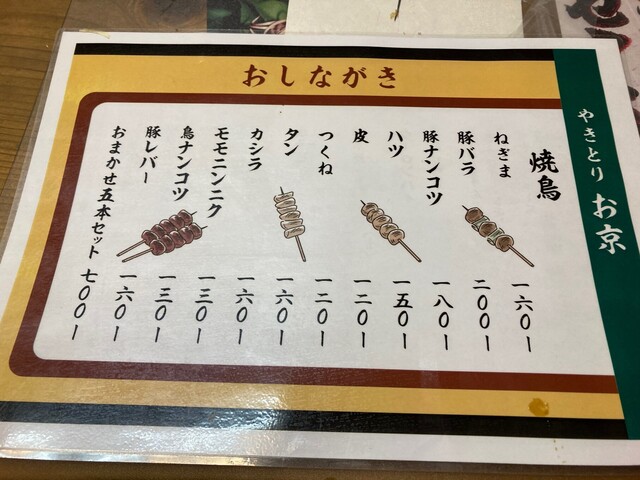 おしながき
やきとり お京
焼鳥
ねぎま 一六〇ー
豚バラ 二〇〇ー
豚ナンコツ 一八〇ー
ハツ 一五〇ー
皮 一二〇ー
つくね 一二〇ー
タン 一六〇ー
カシラ 一六〇ー
モモニンニク 一三〇ー
鳥ナンコツ 一三〇ー
豚レバー 一六〇ー
おまかせ五本セット 七〇〇ー